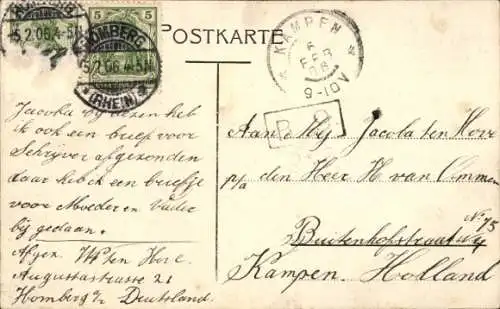 HOMBERG
5.2.06.4-5N
5
5
HOMBERG
5.2.06.4-5N
(RHEIN)
POSTKARTE
KAMPEN
6
FEB
06
9-10V
Jacoba bij dezen heb
ik ook een brief voor
Schrijver afgezonden
daar heb ik een briefje
voor Moeder en Vader
bij gedaan.
Afzen. W ten Hove
Augustastrasse 21
Homberg a/r Deutsland.
Aan Mej Jacoba ten Hove
p/a den Heer H van Ommen
Buitenhofstraat
No 75
Kampen. Holland